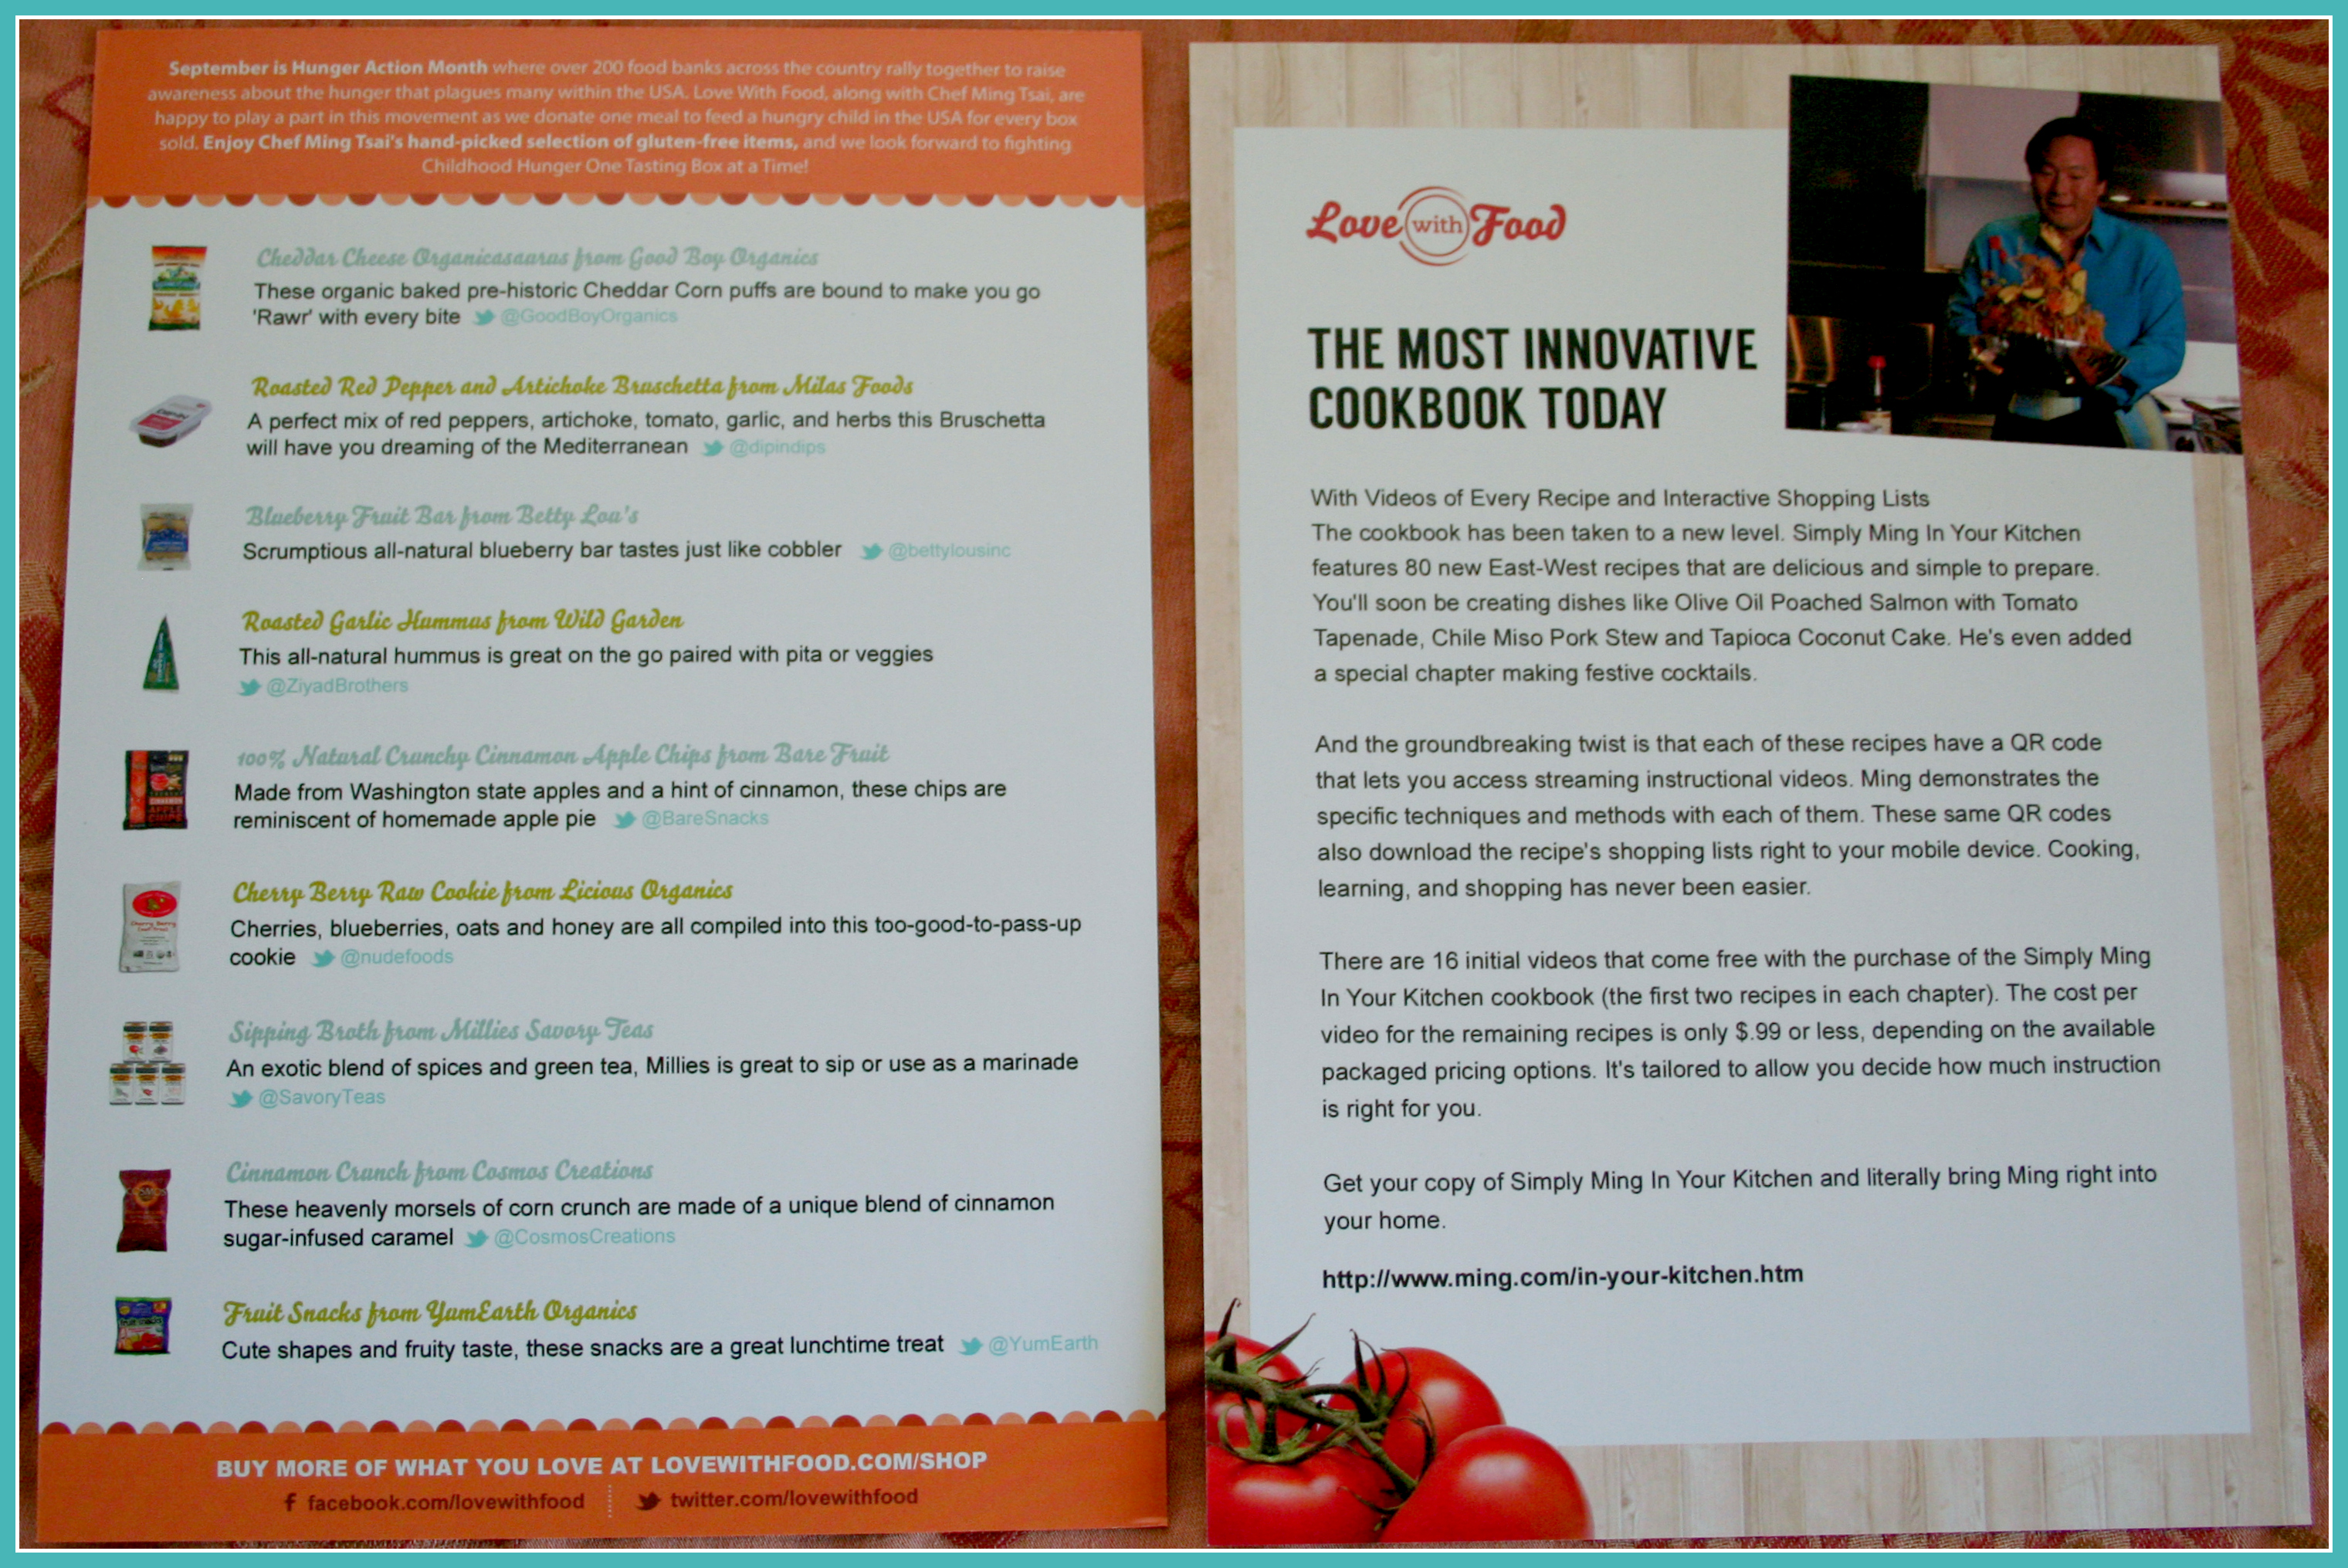 September is Hunger Action Month where over 200 food banks across the country rally together to raise
awareness about the hunger that plagues many within the USA. Love With Food, along with Chef Ming Tsai, are
happy to play a part in this movement as we donate one meal to feed a hungry child in the USA for every box
sold. Enjoy Chef Ming Tsai's hand-picked selection of gluten-free items, and we look forward to fighting
Childhood Hunger One Tasting Box at a Time!
Cheddar Cheese Organicasaurus from Good Boy Organics
These organic baked pre-historic Cheddar Corn puffs are bound to make you go
'Rawr' with every bite @GoodBoyOrganics
Roasted Red Pepper and Artichoke Bruschetta from Milas Foods
A perfect mix of red peppers, artichoke, tomato, garlic, and herbs this Bruschetta
will have you dreaming of the Mediterranean @dipindips
Blueberry Fruit Bar from Betty Lou's
Scrumptious all-natural blueberry bar tastes just like cobbler @bettylousinc
Roasted Garlic Hummus from Wild Garden
This all-natural hummus is great on the go paired with pita or veggies
@ZiyadBrothers
100% Natural Crunchy Cinnamon Apple Chips from Bare Fruit
Made from Washington state apples and a hint of cinnamon, these chips are
reminiscent of homemade apple pie @BareSnacks
Cherry Berry Raw Cookie from Licious Organics
Cherries, blueberries, oats and honey are all compiled into this too-good-to-pass-up
cookie @nudefoods
Sipping Broth from Millies Savory Teas
An exotic blend of spices and green tea, Millies is great to sip or use as a marinade
@SavoryTeas
Cinnamon Crunch from Cosmos Creations
These heavenly morsels of corn crunch are made of a unique blend of cinnamon
sugar-infused caramel @CosmosCreations
Fruit Snacks from YumEarth Organics
Cute shapes and fruity taste, these snacks are a great lunchtime treat @YumEarth
BUY MORE OF WHAT YOU LOVE AT LOVEWITHFOOD.COM/SHOP
facebook.com/lovewithfood twitter.com/lovewithfood
Love with Food
THE MOST INNOVATIVE
COOKBOOK TODAY
With Videos of Every Recipe and Interactive Shopping Lists
The cookbook has been taken to a new level. Simply Ming In Your Kitchen
features 80 new East-West recipes that are delicious and simple to prepare.
You'll soon be creating dishes like Olive Oil Poached Salmon with Tomato
Tapenade, Chile Miso Pork Stew and Tapioca Coconut Cake. He's even added
a special chapter making festive cocktails.
And the groundbreaking twist is that each of these recipes have a QR code
that lets you access streaming instructional videos. Ming demonstrates the
specific techniques and methods with each of them. These same QR codes
also download the recipe's shopping lists right to your mobile device. Cooking,
learning, and shopping has never been easier.
There are 16 initial videos that come free with the purchase of the Simply Ming
In Your Kitchen cookbook (the first two recipes in each chapter). The cost per
video for the remaining recipes is only $.99 or less, depending on the available
packaged pricing options. It's tailored to allow you decide how much instruction
is right for you.
Get your copy of Simply Ming In Your Kitchen and literally bring Ming right into
your home.
http://www.ming.com/in-your-kitchen.htm